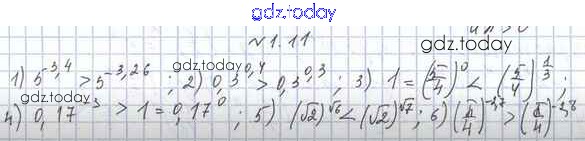 gdz.today
№1.11
gdz.today
1) 5^-3,4 > 5^-3,26 ; 2) 0,3^0,4 > 0,3^0,3 ; 3) 1 = (5/4)^0 < (5/4)^1/3 ;
gdz.today
4) 0,17^-3 > 1 = 0,17^0 ; 5) (√2)^√6 < (√2)^√7 ; 6)